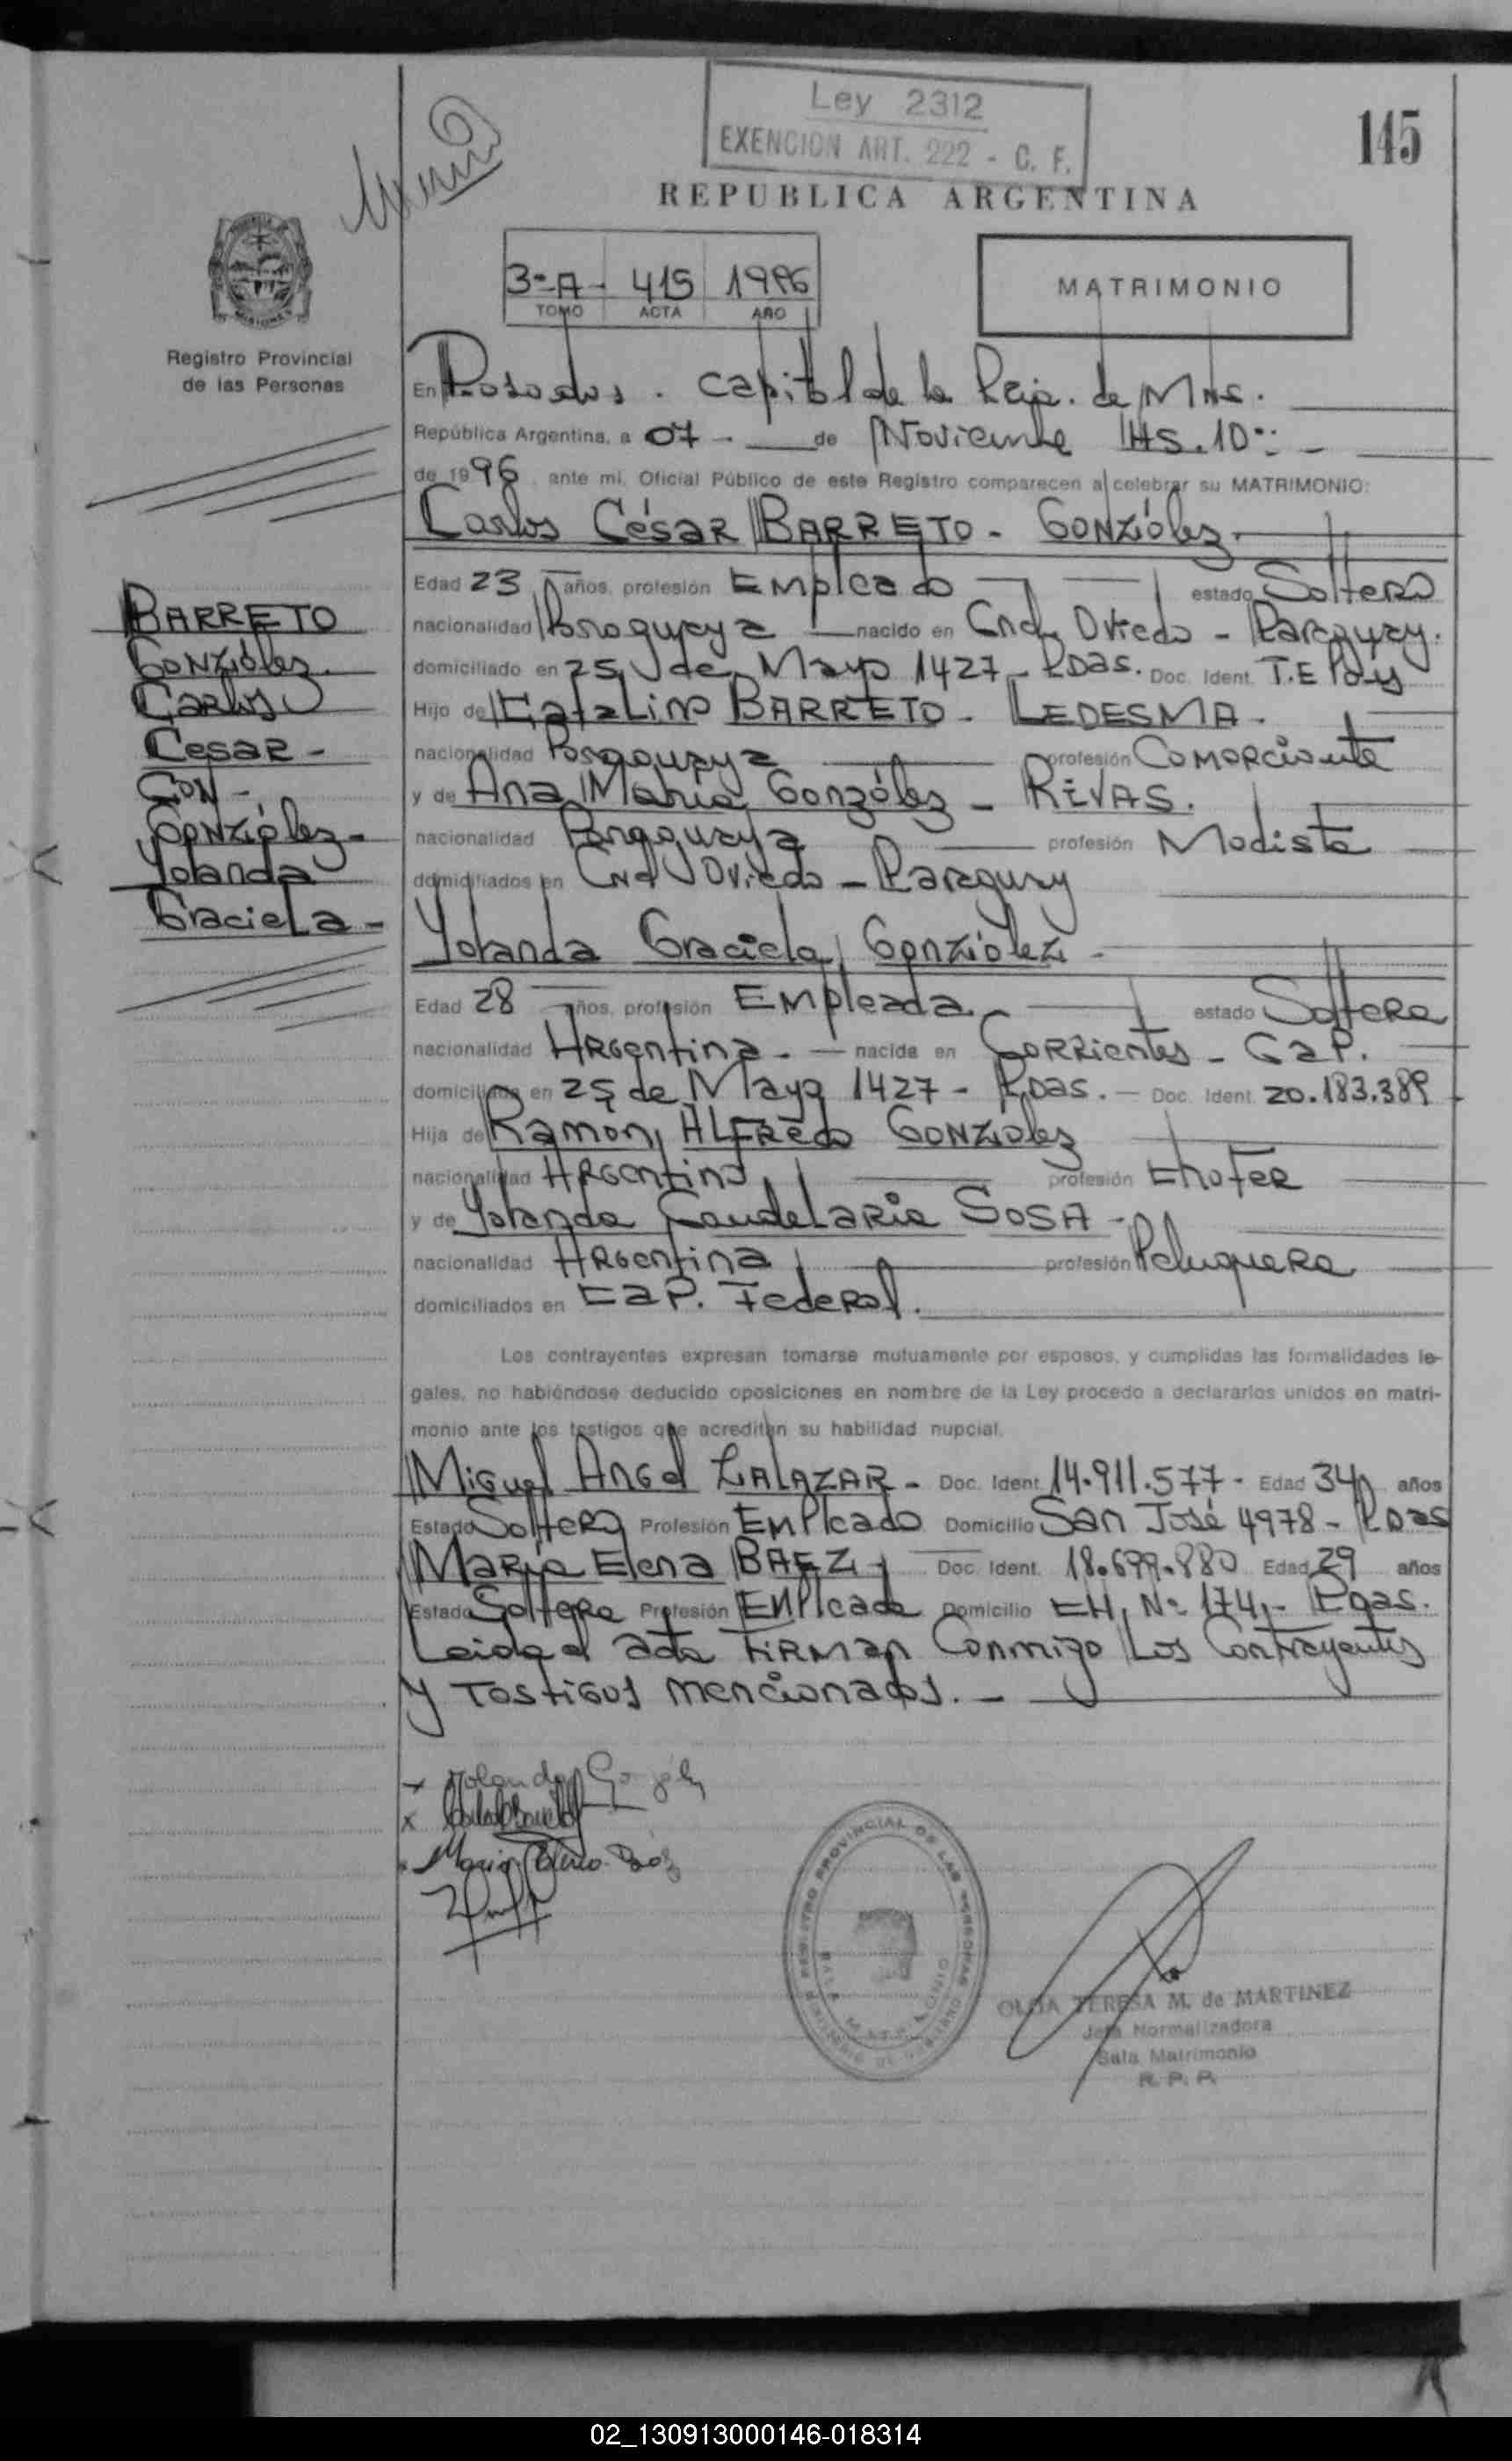 Ley 2312
EXENCION ART. 222 - C. F.
145
REPUBLICA ARGENTINA
3º-A- 415 1996
TOMO ACTA AÑO
MATRIMONIO
Registro Provincial
de las Personas
En Posadas. Capital de la Pcia. de Mnes.
República Argentina, a 07 - de Noviembre Hs. 10:
de 1996 ante mi, Oficial Público de este Registro comparecen a celebrar su MATRIMONIO:
Carlos César BARRETO - González
Edad 23 años, profesión Empleado estado Soltero
nacionalidad Paraguaya nacido en Cnel. Oviedo - Paraguay.
domiciliado en 25 de Mayo 1427 - Pdas. Doc. Ident. T.E
Hijo de Catalino BARRETO - LEDESMA -
nacionalidad Paraguaya profesión Comerciante
y de Ana Maria González - RIVAS.
nacionalidad Paraguaya profesión Modista
domiciliados en Cnel Oviedo - Paraguay
BARRETO
González
Carlos
Cesar -
Con -
González -
Yolanda
Graciela -
Yolanda Graciela González -
Edad 28 años, profesión Empleada estado Soltera
nacionalidad Argentina - nacida en Corrientes - Cap.
domiciliada en 25 de Mayo 1427 - Pdas. - Doc. Ident. 20.183.389
Hija de Ramon Alfredo González
nacionalidad Argentino profesión Chofer
y de Yolanda Candelaria SOSA -
nacionalidad Argentina profesión Peluquera
domiciliados en Cap. Federal.
Los contrayentes expresan tomarse mutuamente por esposos, y cumplidas las formalidades le-
gales, no habiéndose deducido oposiciones en nombre de la Ley procedo a declararlos unidos en matri-
monio ante los testigos que acreditan su habilidad nupcial.
Miguel Angel ZALAZAR - Doc. Ident. 14.911.577 - Edad 34 años
Estado Soltero Profesión Empleado Domicilio San José 4978 - Pdas
Maria Elena BAEZ Doc. Ident. 18.699.880 Edad 29 años
Estado Soltera Profesión Empleada Domicilio CH. Nº 174, - Pdas.
Leida el acta firman conmigo los contrayentes
y testigos mencionados. -
x Yolanda
x
x Maria Elena Baez
REGISTRO PROVINCIAL DE LAS PERSONAS
OLGA TERESA M. de MARTINEZ
Jefa Normalizadora
Sala Matrimonio
R. P. P.
02_130913000146-018314